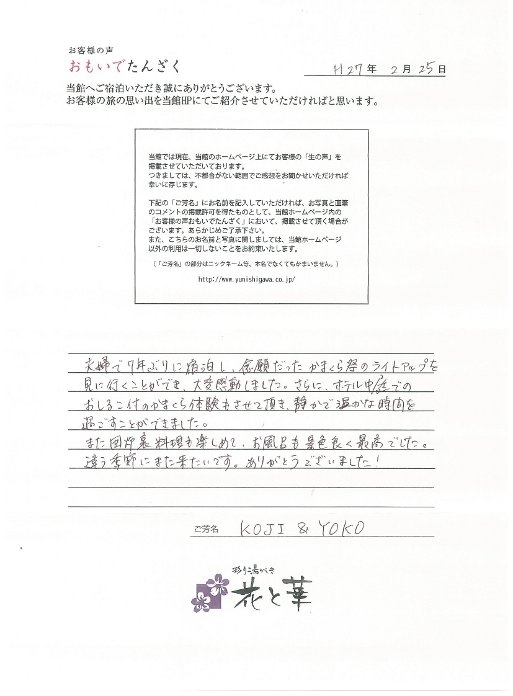 お客様の声
おもいでたんざく
H27年 2月 25日
当館へご宿泊いただき誠にありがとうございます。
お客様の旅の思い出を当館HPにてご紹介させていただければと思います。
当館では現在、当館のホームページ上にてお客様の「生の声」を
掲載させていただいております。
つきましては、不都合がない範囲でご感想をお聞かせいただければ
幸いに存じます。
下記の「ご芳名」にお名前を記入していただければ、お写真と直筆
のコメントの掲載許可を得たものとして、当館ホームページ内の
「お客様の声おもいでたんざく」において、掲載させて頂く場合が
ございます。あらかじめご了承下さい。
また、こちらのお名前と写真に関しましては、当館ホームページ
以外の利用は一切しないことをお約束いたします。
(「ご芳名」の部分はニックネーム等、本名でなくてもかまいません。)
http://www.yunishigawa.co.jp/
夫婦で7年ぶりに宿泊し、念願だったかまくら祭のライトアップを
見に行くことができ、大変感動しました。さらに、ホテル中庭での
おしるこ付のかまくら体験もさせて頂き、静かで温かな時間を
過ごすことができました。
また囲炉裏料理も楽しめて、お風呂も景色良く最高でした。
違う季節にまた来たいです。ありがとうございました!
ご芳名 KOJI & YOKO
彩り湯かしき
花と華